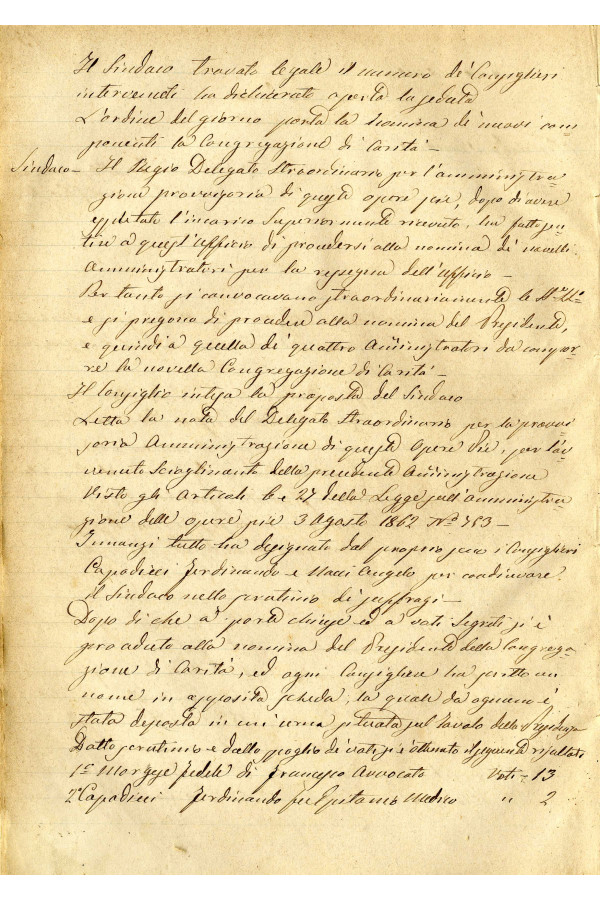 Il Sindaco trovato legale il numero de' Consiglieri
intervenuti ha dichiarato aperta la seduta
L'ordine del giorno porta la nomina di nuovi com=
ponenti la Congregazione di Carità —
Sindaco — Il Regio Delegato Straordinario per l'amministra=
zione provvisoria di queste opere pie, dopo di avere
espletato l'incarico Superiormente ricevuto, ha fatto sen=
tire a quest'Ufficio di procedersi alla nomina de' novelli
Amministratori per la consegna dell'Ufficio —
Per tanto si convocavano straordinariamente le
e si pregono di procedere alla nomina del Presidente,
e quindi a quella de' quattro Amministratori da compor=
re la novella Congregazione di Carità —
Il Consiglio intesa la proposta del Sindaco
Letta la nota del Delegato Straordinario per la provvi
soria Amministrazione di queste Opere Pie, per l'av
venuto Scioglimento della precedente Amministrazione
Visto gli Articoli 6 e 27 della Legge sull'amministra=
zione delle opere pie 3 Agosto 1862 Nº 753 —
Innanzi tutto ha designato dal proprio seno i Consiglieri
Capodieci Ferdinando e Macci Angelo per coadiuvare
il Sindaco nello scrutinio de' suffragi —
Dopo di che a porte chiuse ed a voti Segreti si è
proceduto alla nomina del Presidente della Congrega=
zione di Carità, ed ogni Consigliere ha scritto un
nome in apposita scheda, la quale da ognuno è
stata deposta in un'urna situata sul Tavolo della Presidenza
Dallo scrutinio e dallo spoglio de' voti si è ottenuto il seguente risultato
1º Morgese Fedele di Francesco Avvocato Voti = 13
2º Capodieci Ferdinando fu Epitamio Medico " 2